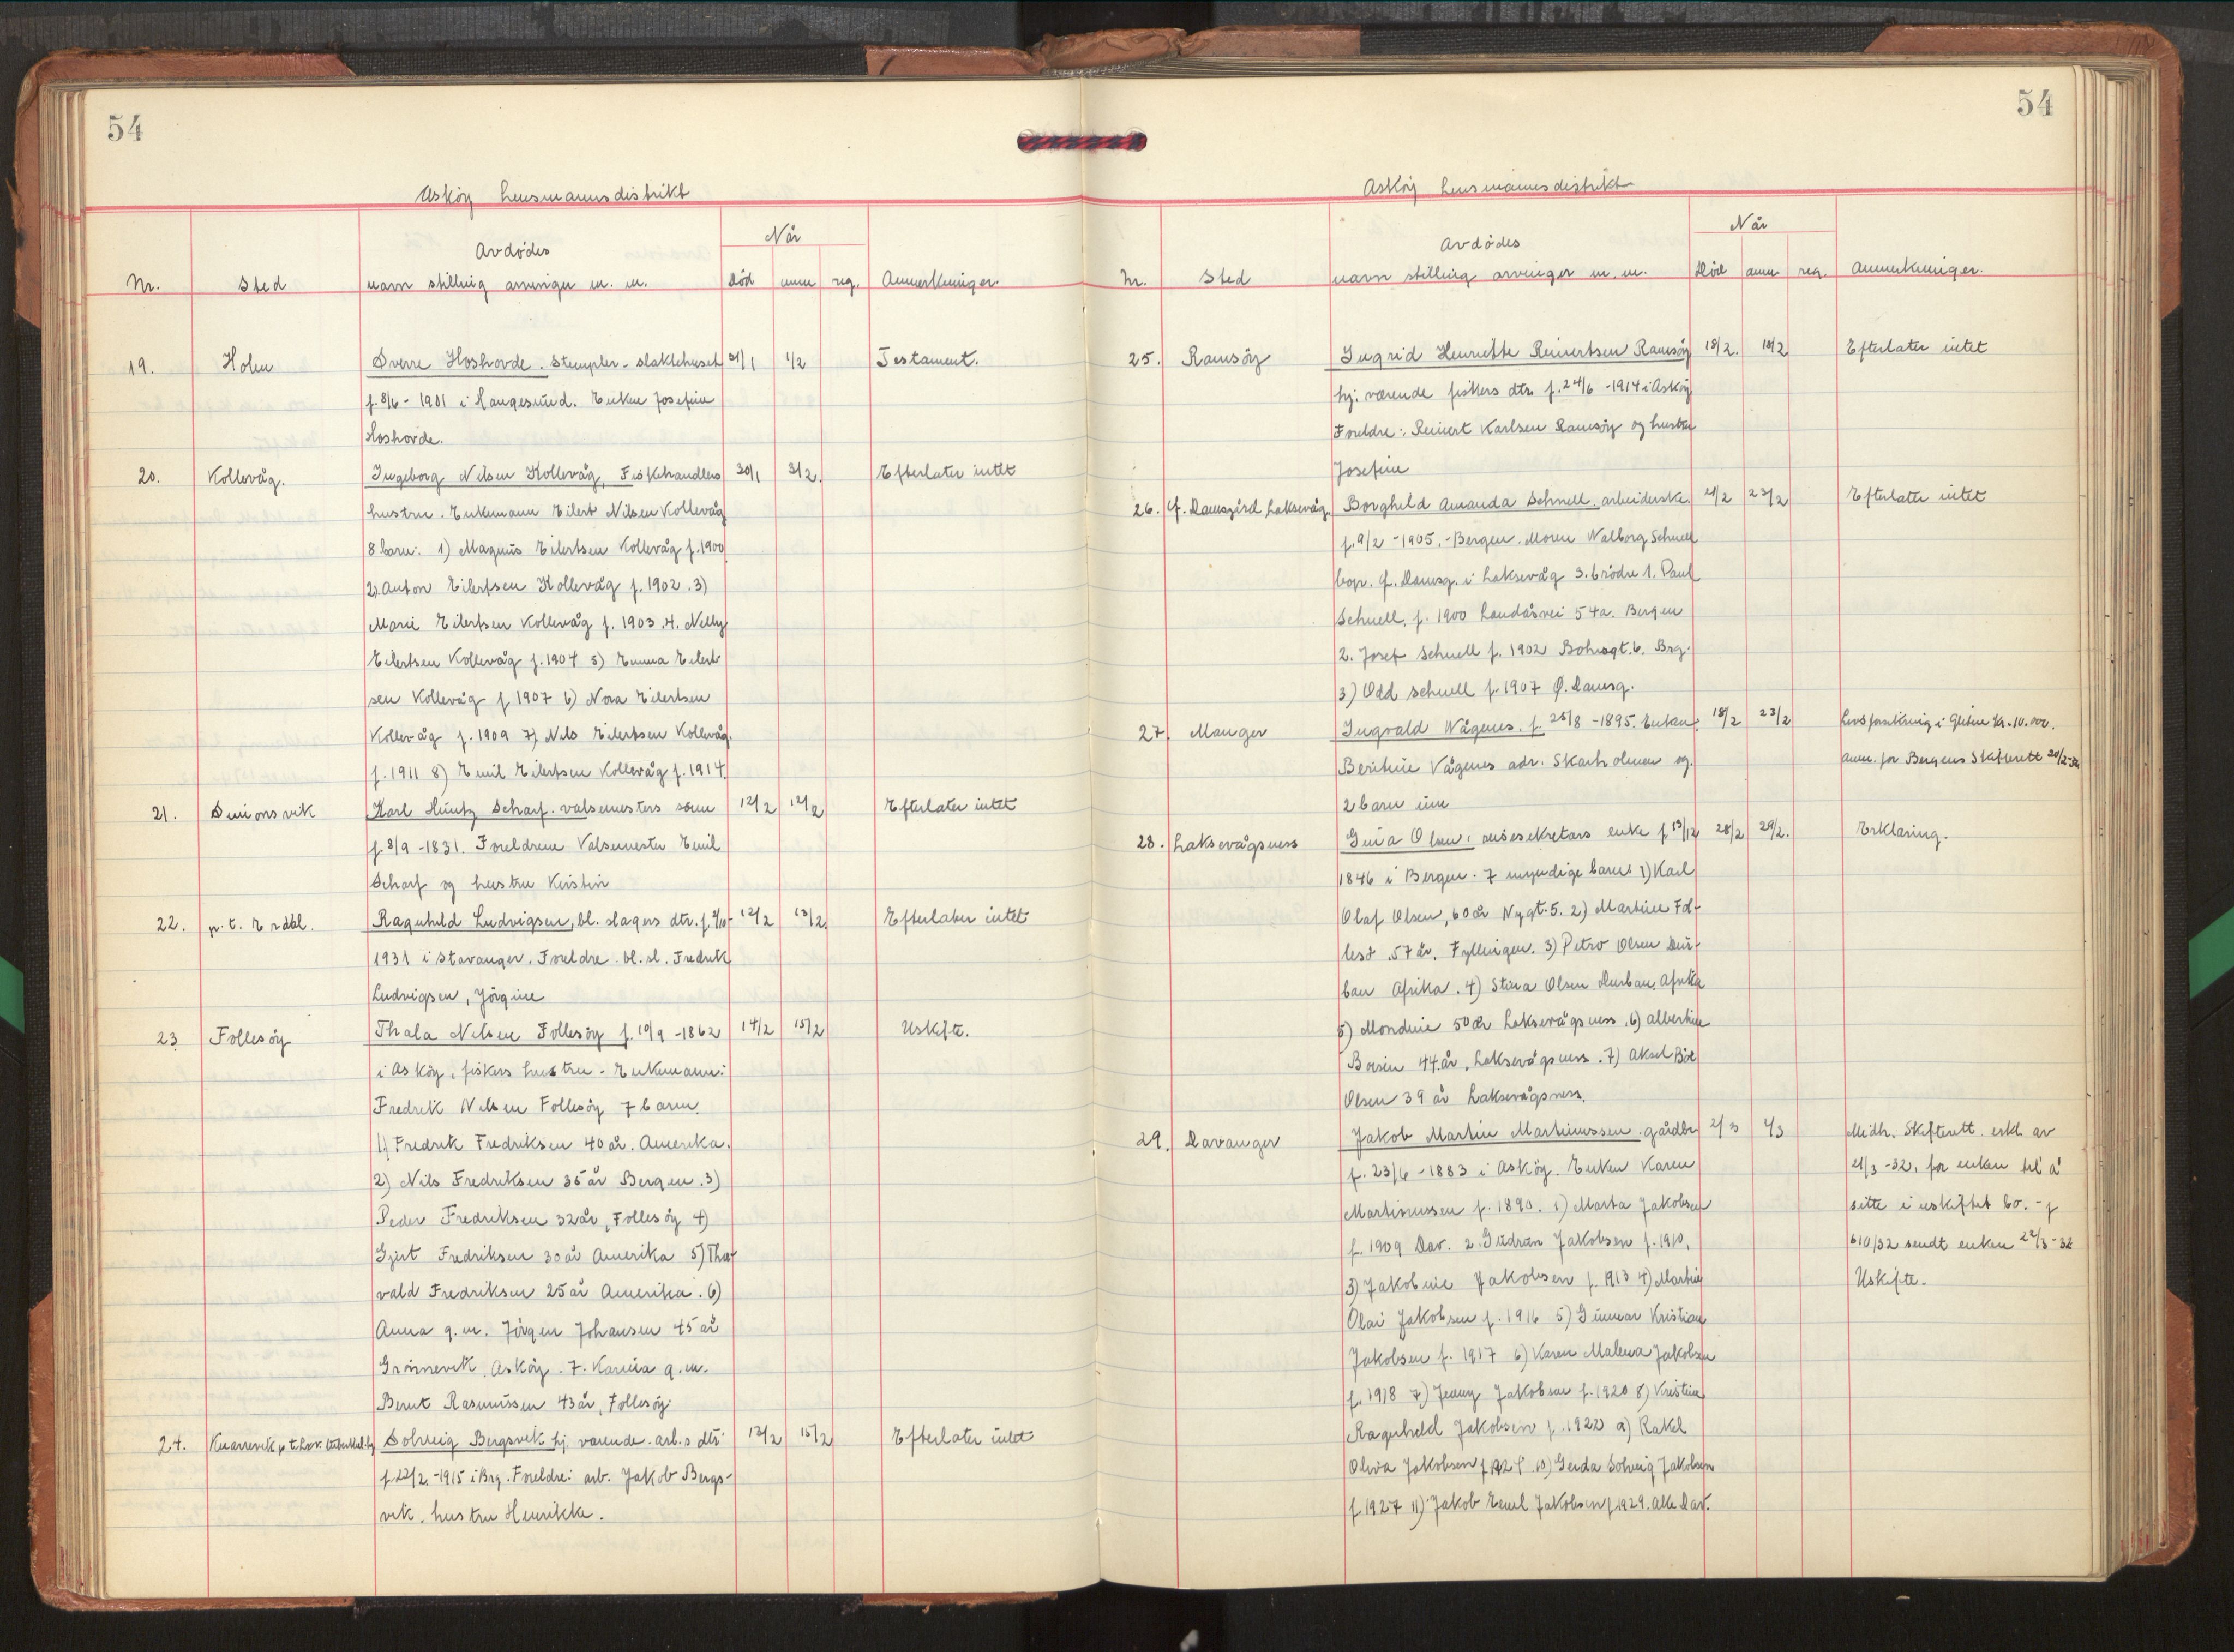 54
Askøy lensmannsdistrikt
Når
Avdødes
Nr. Sted navn stilling arvinger m. m. død anm reg. Anmerkninger.
19. Holen Sverre Hoshovde. Stempler - slaktehuset 31/1 1/2 Testament.
f. 8/6 - 1901 i Haugesund. Enken Josefine
Hoshovde.
20. Kollevåg. Ingeborg Nilsen Kollevåg, Fiskehandlers 30/1 3/2. Efterlater intet
hustru. Enkemann Eilert Nilsen Kollevåg
8 barn: 1) Magnus Eilertsen Kollevåg f. 1900
2) Anton Eilertsen Kollevåg f. 1902. 3)
Marie Eilertsen Kollevåg f. 1903. 4. Nelly
Eilertsen Kollevåg f. 1904 5) Emma Eilert
sen Kollevåg f. 1907 6) Nora Eilertsen
Kollevåg f. 1909 7) Nils Eilertsen Kollevåg.
f. 1911 8) Emil Eilertsen Kollevåg f. 1914.
21. Simonsvik Karl Huntz Scharf. valsemesters sønn 12/2 12/2 Efterlater intet
f. 3/9 - 1831. Foreldrene Valsemester Emil
Scharf og hustru Kristin
22. p. t. Erdal. Ragnhild Ludvigsen, bl. slagers dtr. f. 12/2 13/2. Efterlater intet
1931 i Stavanger. Foreldre. bl. sl. Fredrik
Ludvigsen, Jørgine
23. Follesøy Thala Nilsen Follesøy f. 10/9 - 1862 14/2 15/2 Uskifte.
i Askøy, fiskers hustru. Enkemann:
Fredrik Nilsen Follesøy 7 barn.
1) Fredrik Fredriksen 40 år. Amerika.
2) Nils Fredriksen 35 år Bergen. 3)
Peder Fredriksen 32 år, Follesøy 4)
Gjert Fredriksen 30 år Amerika 5) Thor
vald Fredriksen 25 år Amerika. 6)
Anna g. m. Jørgen Johansen 45 år
Grønnevik, Askøy. 7. Karina g. m.
Bernt Rasmussen 43 år, Follesøy.
24. Knarrevik p. t. Solveig Bergsvik hj. værende. arb.s dtr. 13/2 15/2 Efterlater intet
f. 22/2 - 1915 i Brg. Foreldre: arb. Jakob Bergs-
vik, hustru Henrikke.
54
Askøy lensmannsdistrikt
Når
Avdødes
Nr. Sted navn stilling arvinger m. m. Død anm reg. Anmerkninger.
25. Ramsøy Ingrid Henriette Reinertsen Ramsøy 18/2. 18/2 Efterlater intet
hj. værende fiskers dtr. f. 24/6 - 1914 i Askøy
Foreldre: Reinert Karlsen Ramsøy og hustru
Josefine
26. Damsgård Laksevåg Borghild Amanda Schnell. arbeiderske. 21/2 23/2 Efterlater intet
f. 9/2 - 1905. - Bergen. Moren Valborg Schnell
bop. Ø. Damsg. i Laksevåg 3. brødre 1. Paul
Schnell, f. 1900 Landåsvei 54a. Bergen
2. Josef Schnell f. 1902 Bohrsgt. 6. Brg.
3) Odd Schnell f. 1907 Ø. Damsg.
27. Manger Ingvald Vågenes. f. 25/8 - 1895. Enken: 18/2 23/2 Livsforsikring i Gjetne kr. 10.000.
Beritine Vågenes adr. Skarholmen og. anm. for Bergens Skifterett 20/2-32
2 barn
28. Laksevågsness Gina Olsen, enke f. 13/12 28/2 29/2. Erklæring.
1846 i Bergen. 7 myndige barn: 1) Karl
Olaf Olsen, 60 år Nygt. 5. 2) Martine Fol-
lesø. 57 år. Fyllingen. 3) Petro Olsen Dur-
ban Afrika. 4) Stina Olsen Durban, Afrika
5) Mondine 50 år Laksevågsness. 6) Albertine
Boisin 44. år, Laksevågsness. 7) Aksel Böe
Olsen 39 år Laksevågsness.
29. Davanger Jakob Martin Martinussen. gårdbr 2/3 4/3 Midh. Skifterett. erkl. av
f. 23/6 - 1883 i Askøy. Enken Karen 21/3 - 32, for enken til å
Martinussen f. 1890. 1) Marta Jakobsen sitte i uskiftet bo. - J
f. 1909 Dav. 2. Gudrun Jakobsen f. 1910. 610/32 sendt enken 22/3 - 32
3) Jakobine Jakobsen f. 1913 4) Martin Uskifte.
Olai Jakobsen f. 1916 5) Gunnar Kristian
Jakobsen f. 1917 6) Karen Malena Jakobsen
f. 1918 7) Jenny Jakobsen f. 1920 8) Kristine
Ragnhild Jakobsen f. 1922 9) Rakel
Oliva Jakobsen f. 1924 10) Gerda Solveig Jakobsen
f. 1927 11) Jakob Emil Jakobsen f. 1929. alle Dav.